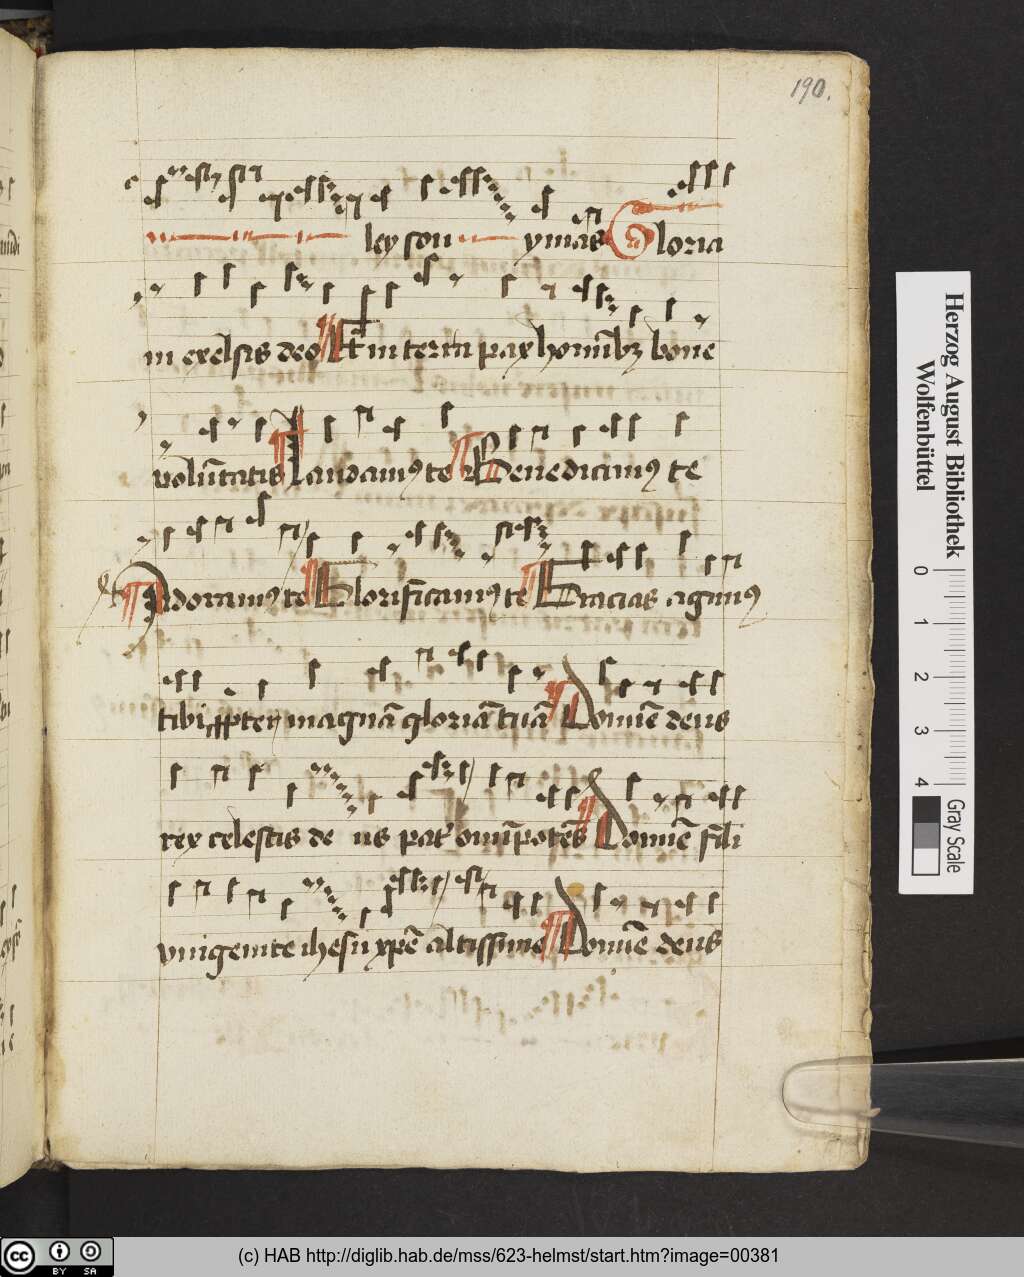 190.
leyson ymas Gloria
in exelsis deo Et in terra pax hominībꝫ bone
volūtatis Laudamꝰ te Benedicamꝰ te
Adoramꝰ te Glorificamꝰ te Gracias agimꝰ
tibi ꝓpter magnā gloriā tuā Domine deus
rex celestis deus pat omīpotēs Domine fili
vnigenite ihesu xpē altissime Domine deus
Herzog August Bibliothek
Wolfenbüttel
0 1 2 3 4
Gray Scale
cc BY SA
(c) HAB http://diglib.hab.de/mss/623-helmst/start.htm?image=00381